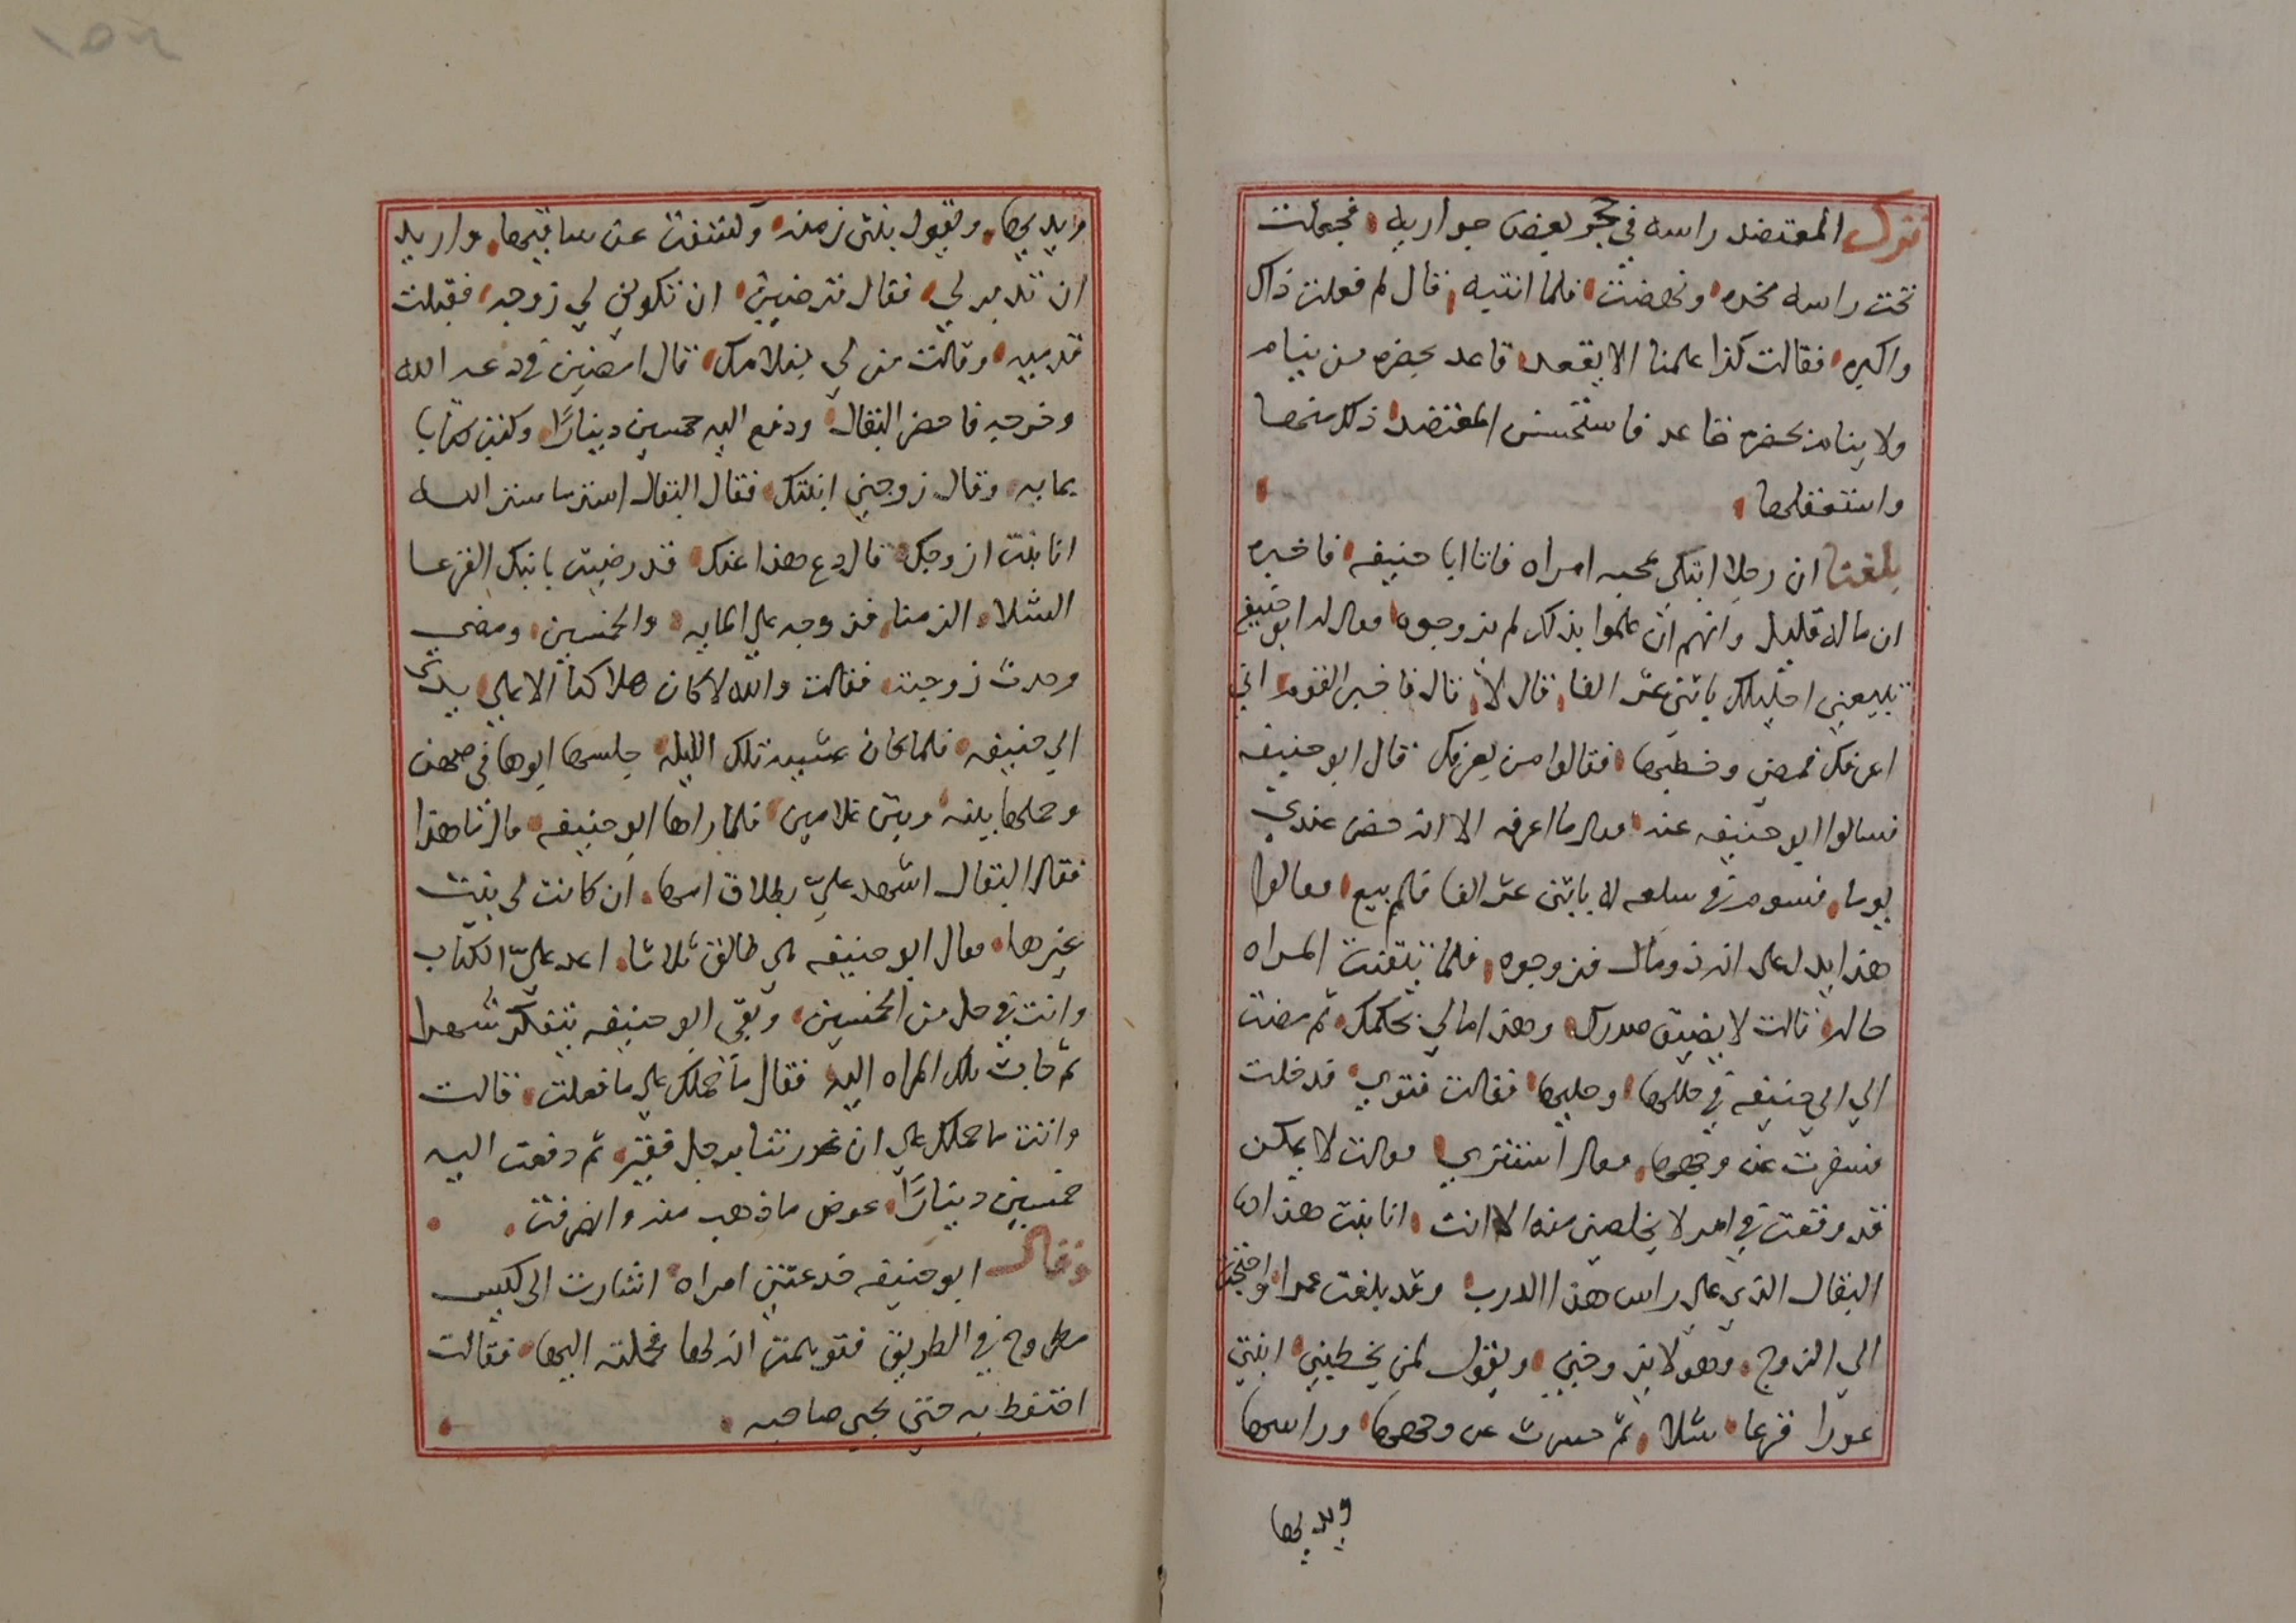 ترك المعتضد راسه في حجر بعض جواريه فجعلت
تحت راسه مخده ونهضت فلما انتبه قال لم فعلت ذاك
واكبره فقالت كذا علمنا الا يقعد قاعد بحضره من ينام
ولا ينام بحضره قاعد فاستحسن المعتضد ذلك منها
واستعقلها
بلغنا ان رجلا ابتلي بمحبه امراه فاتا ابا حنيفه فاخبره
ان ماله قليل وانهم ان علموا بذلك لم يزوجوه فقال له ابو حنيفه
تبيعني احليلك باثني عشر الفا قال لا قال فاخبر القوم اني
اعرفك فمضي وخطبها فقالوا من يعرفك قال ابو حنيفه
فسالوا ابو حنيفه عنه فقال ما اعرفه الا انه حضر عندي
يوما فسوم في سلعه له باثني عشر الفا فلم يبيع فقالوا
هذا يدل علي انه ذو مال فزوجوه فلما تيقنت المراه
حاله قالت لا يضيق صدرك وهذا مالي بحكمك ثم مضت
الي ابي حنيفه في حللها وحليها فقالت فتوي فدخلت
فسفرت عن وجهها فقال استتري فقالت لا يمكن
قد وقعت في امر لا يخلصني منه الا انت انا بنت هذا
البقال الذي علي راس هذا الدرب وقد بلغت عمرا واحتجت
الي الزوج وهو لا يزوجني ويقول لمن يخطبني ابنتي
عورا قرعا شلا ثم حسرت عن وجهها وراسها
ويديها
ويديها ويقول بنتي زمنه وكشفت عن ساقيها واريد
ان تدبر لي فقال ترضين ان تكوني لي زوجه فقبلت
قدميه وقالت من لي بغلامك قال امضين في دعه الله
وخرجه فاحضر البقال ودفع اليه خمسين دينارا وكتب كتابا
بمايه وقال زوجني ابنتك فقال البقال استر ما ستر الله
انا بنت ازوجك قال دع هذا عنك قد رضيت بابنتك القرعا
الشلا الزمنا فزوجه علي المايه والخمسين ومضي
وحدث زوجته فقالت والله لا كان هلاكنا الا علي يدي
ابي حنيفه فلما كان عشيه تلك الليله جلسها ابوها في صحن
وحملها بينه وبين غلامين فلما راها ابو حنيفه قال ما هذا
فقال البقال اشهد علي بطلاق امها ان كانت لي بنت
غيرها فقال ابو حنيفه هي طالق ثلاثا اعد علي الكتاب
وانت في حل من الخمسين وبقي ابو حنيفه يتفكر شهرا
ثم جات تلك المراه اليه فقال ما حملك علي ما فعلت قالت
وانت ما حملك علي ان غررتنا برجل فقير ثم دفعت اليه
خمسين دينارا عوض ما ذهب منه وانصرفت
وقال ابو حنيفه خدعتني امراه اشارت الي كيس
مطروح في الطريق فتوهمت انه لها فحملته اليها فقالت
احتفظ به حتي يجي صاحبه